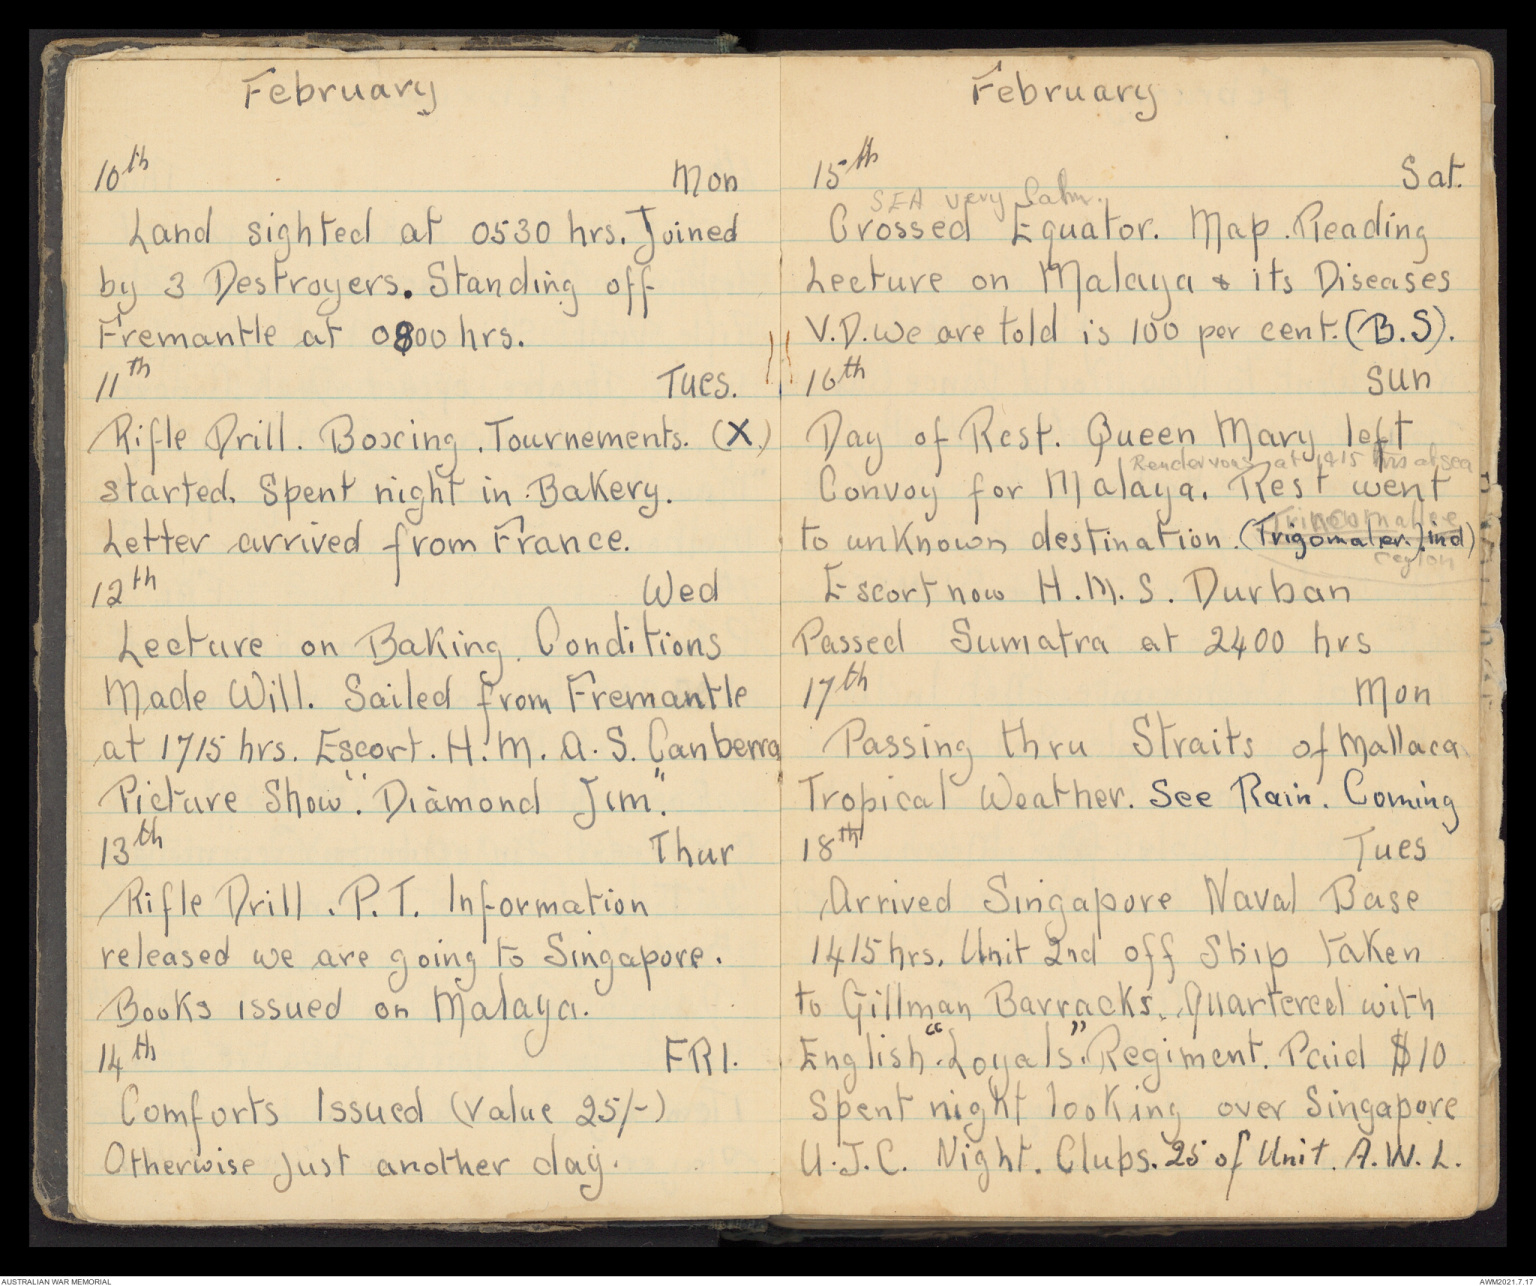 February
10th Mon
Land sighted at 0530 hrs. Joined
by 3 Destroyers. Standing off
Fremantle at 0800 hrs.
11th Tues.
Rifle Drill. Boxing. Tournements. (X)
started. Spent night in Bakery.
Letter arrived from France.
12th Wed
Lecture on Baking Conditions
Made Will. Sailed from Fremantle
at 1715 hrs. Escort. H.M.A.S. Canberra
Picture Show. "Diamond Jim".
13th Thur
Rifle Drill. P.T. Information
released we are going to Singapore.
Books issued on Malaya.
14th FRI.
Comforts Issued (value 25/-)
Otherwise just another day.
February
15th Sat.
SEA very Calm.
Crossed Equator. Map Reading
Lecture on Malaya & its Diseases
V.D. we are told is 100 per cent. (B.S).
16th Sun
Day of Rest. Queen Mary left
Rendervous at 1415 hrs at sea
Convoy for Malaya. Rest went
Trincomalee
to unknown destination. (Trigomaler. ind)
region
Escort now H.M.S. Durban
Passed Sumatra at 2400 hrs
17th Mon
Passing thru Straits of Mallaca
Tropical Weather. See Rain. Coming
18th Tues
Arrived Singapore Naval Base
1415 hrs. Unit 2nd off Ship taken
to Gillman Barracks. Quartered with
English "Loyals". Regiment. Paid $10
Spent night looking over Singapore
U.J.C. Night. Clubs. 25 of Unit. A.W.L.
AUSTRALIAN WAR MEMORIAL
AWM2021.7.17